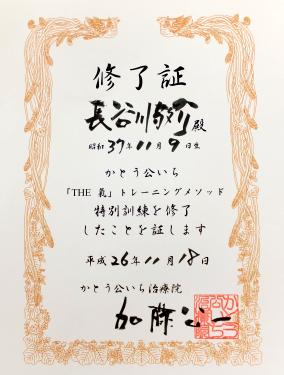 修了証
長谷川 殿
昭和37年11月9日生
かとう公いち
「THE 氣」トレーニングメソッド
特別訓練を修了
したことを証します
平成26年11月18日
かとう公いち治療院
加藤公一